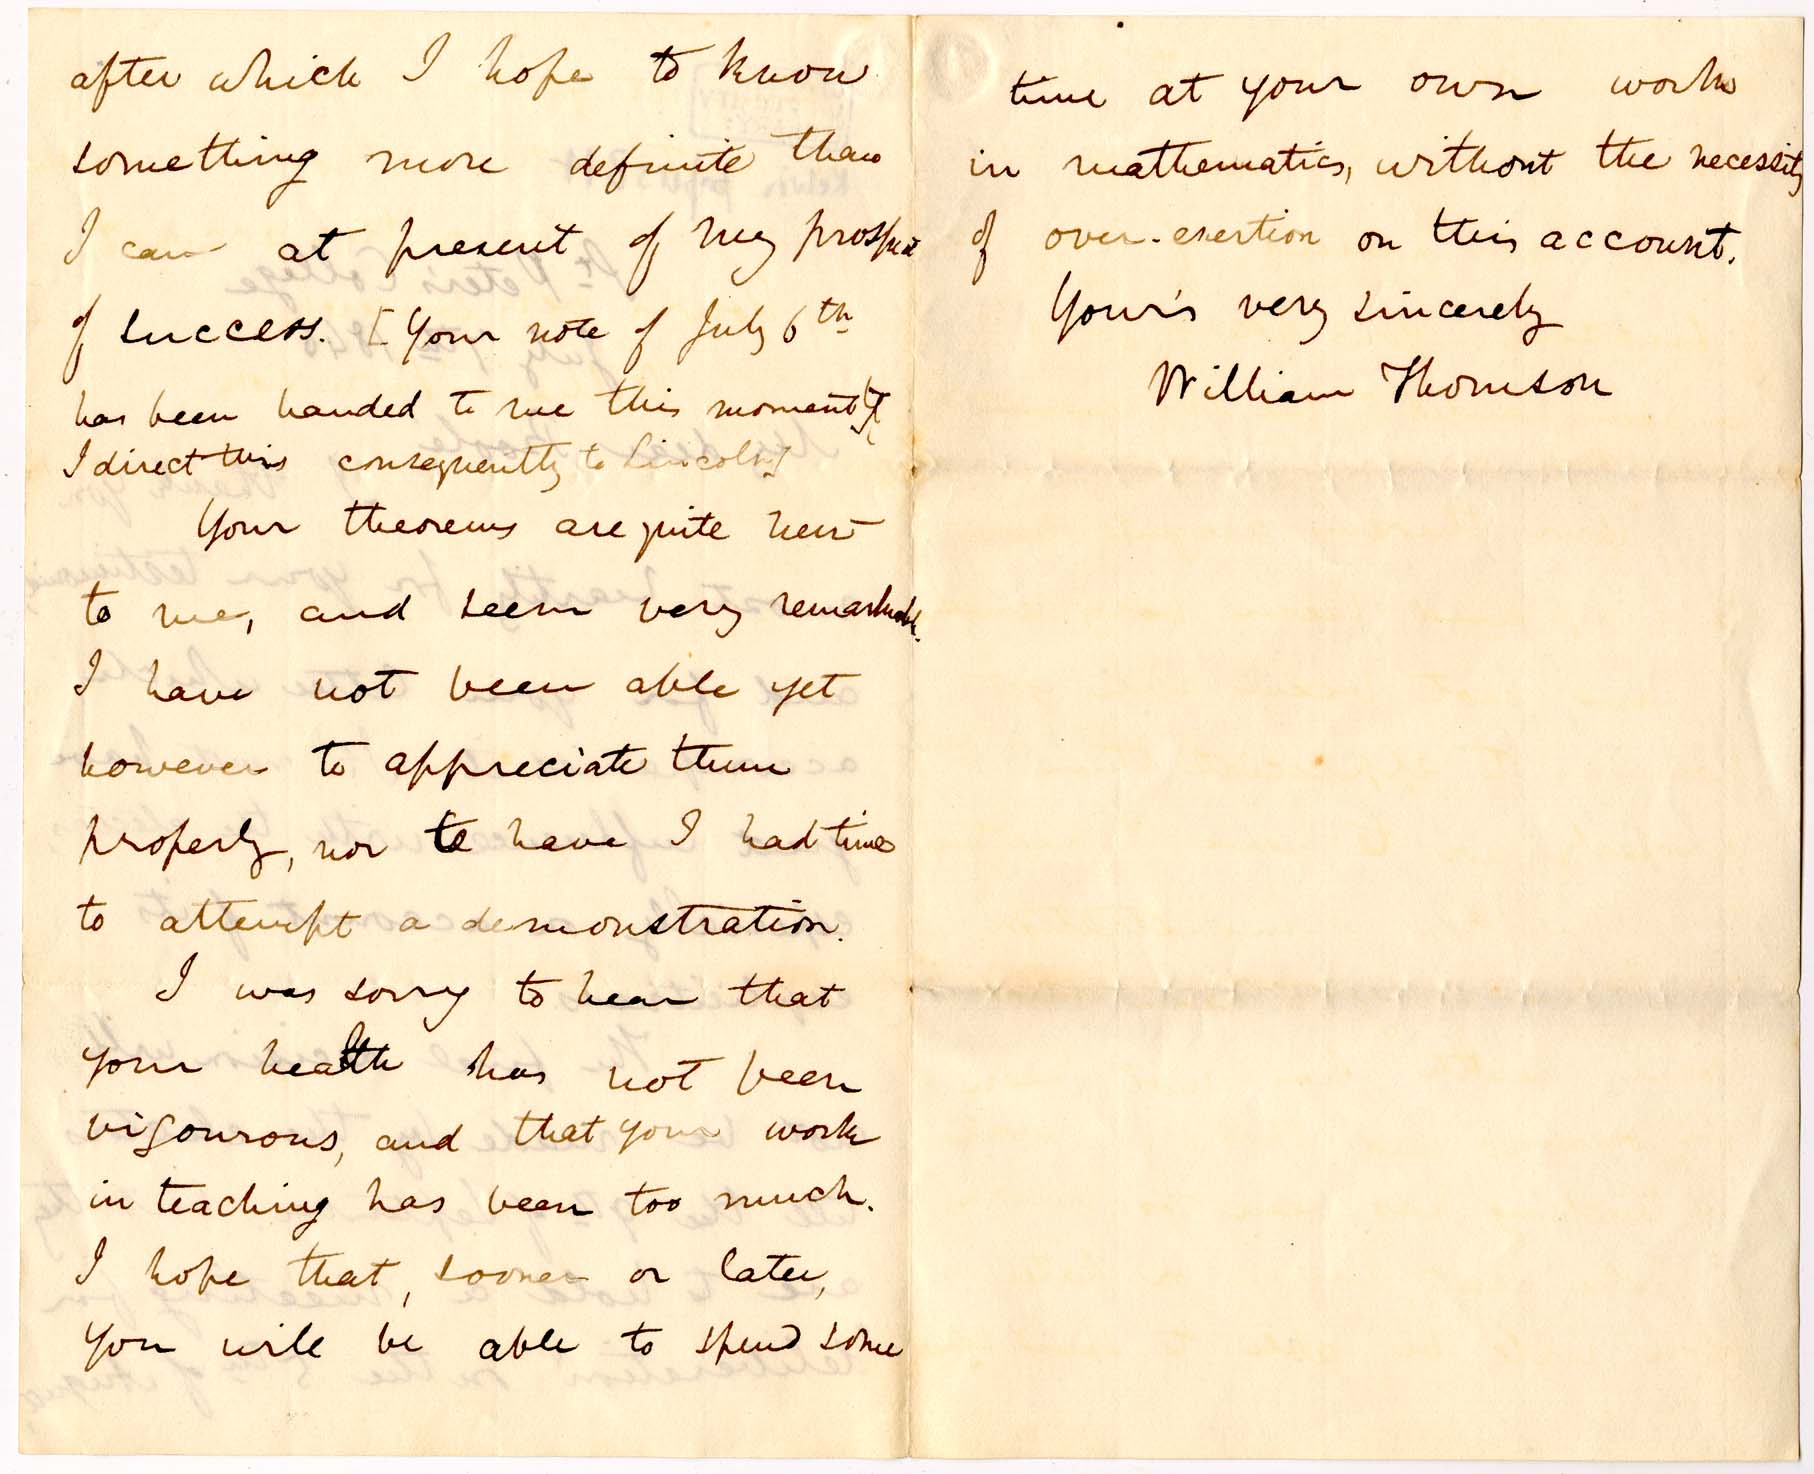 after which I hope to know
something more definite than
I can at present of my prospect
of success. [Your note of July 6th
has been handed to me this moment &
I direct this consequently to Lincoln]
Your theorems are quite new
to me, and seem very remarkable.
I have not been able yet
however to appreciate them
properly, nor have I had time
to attempt a demonstration.
I was sorry to hear that
your health has not been
vigourous, and that your work
in teaching has been too much.
I hope that, sooner or later,
you will be able to spend some
time at your own work
in mathematics, without the necessity
of over-exertion on this account.
Your's very sincerely
William Thomson